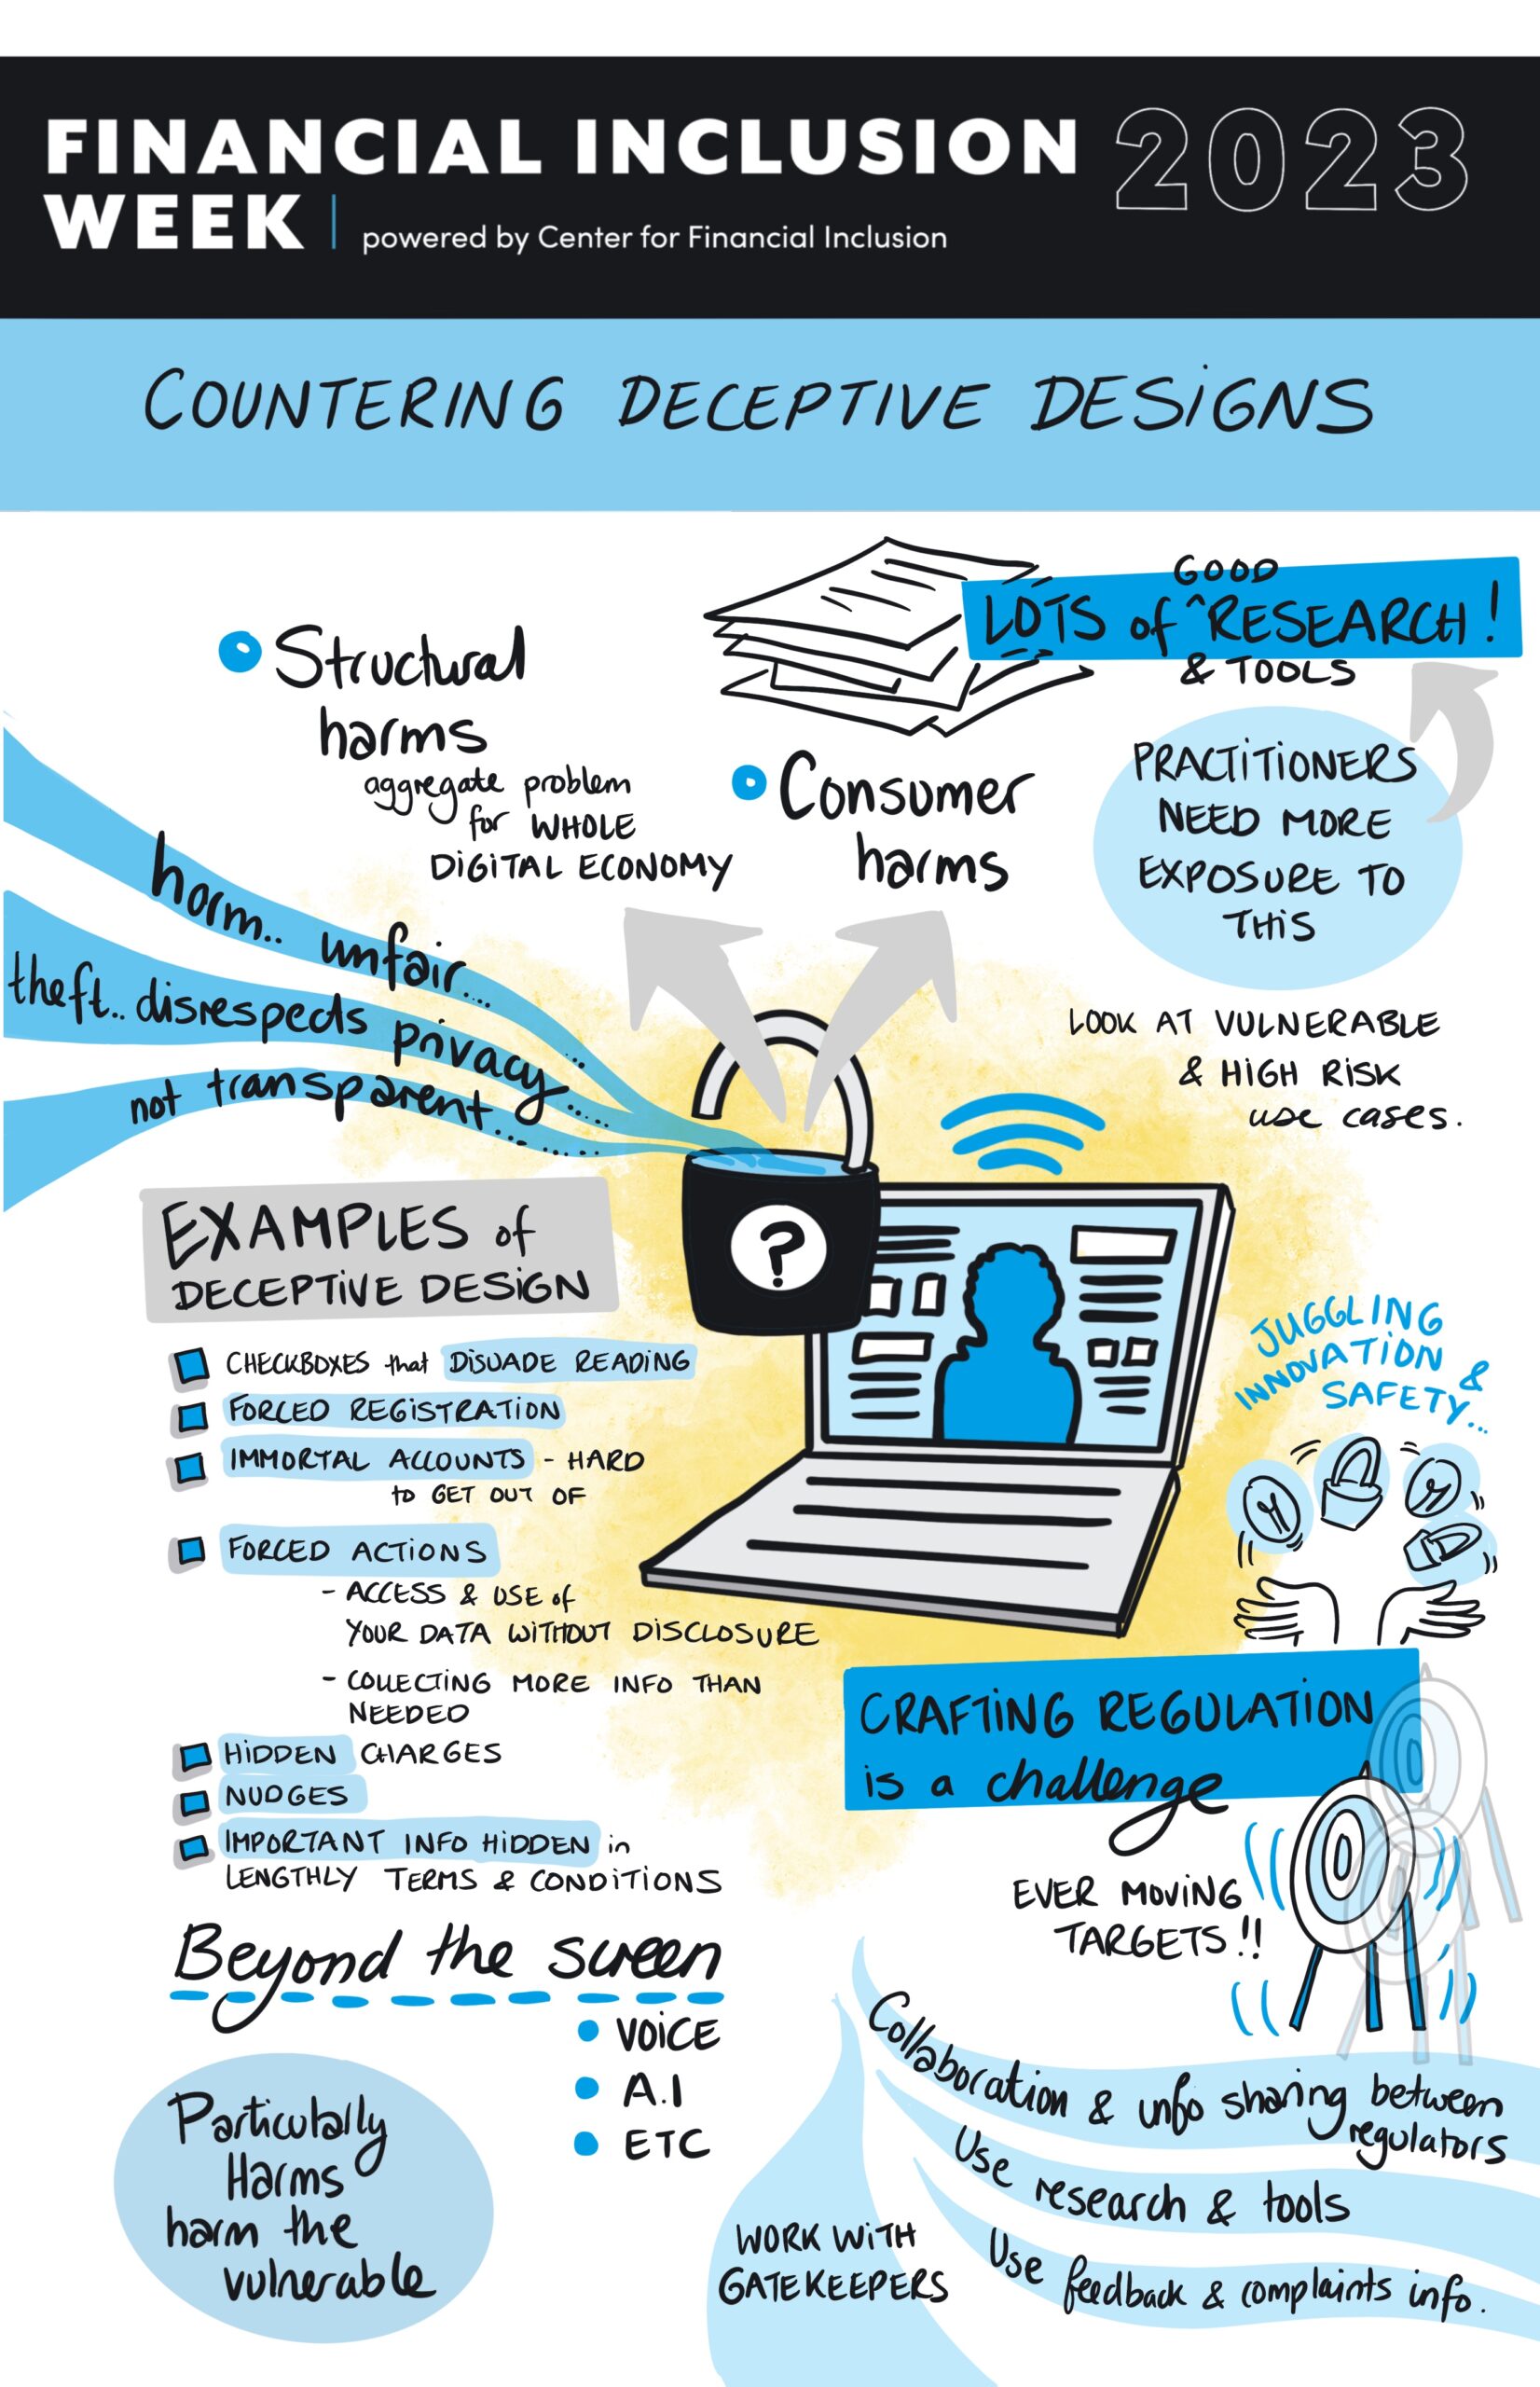 FINANCIAL INCLUSION 2023
WEEK
powered by Center for Financial Inclusion
COUNTERING DECEPTIVE DESIGNS
Structural
harms
aggregate problem
for WHOLE
DIGITAL ECONOMY
GOOD
LOTS of ^RESEARCH!
& TOOLS
Consumer
harms
PRACTITIONERS
NEED MORE
EXPOSURE TO
THIS
harm.. unfair...
theft.. disrespects privacy....
not transparent.........
LOOK AT VULNERABLE
& HIGH RISK
use cases.
?
EXAMPLES of
DECEPTIVE DESIGN
CHECKBOXES that DISUADE READING
FORCED REGISTRATION
IMMORTAL ACCOUNTS - HARD
to GET OUT OF
FORCED ACTIONS
- ACCESS & USE of
YOUR DATA WITHOUT DISCLOSURE
- COLLECTING MORE INFO THAN
NEEDED
HIDDEN CHARGES
NUDGES
IMPORTANT INFO HIDDEN in
LENGTHLY TERMS & CONDITIONS
JUGGLING
INNOVATION &
SAFETY...
CRAFTING REGULATION
is a challenge
EVER MOVING
TARGETS!!
Beyond the screen
VOICE
A.I
ETC
Particularly
Harms
harm the
vulnerable
Collaboration & info sharing between
regulators
Use research & tools
Use feedback & complaints info.
WORK WITH
GATEKEEPERS